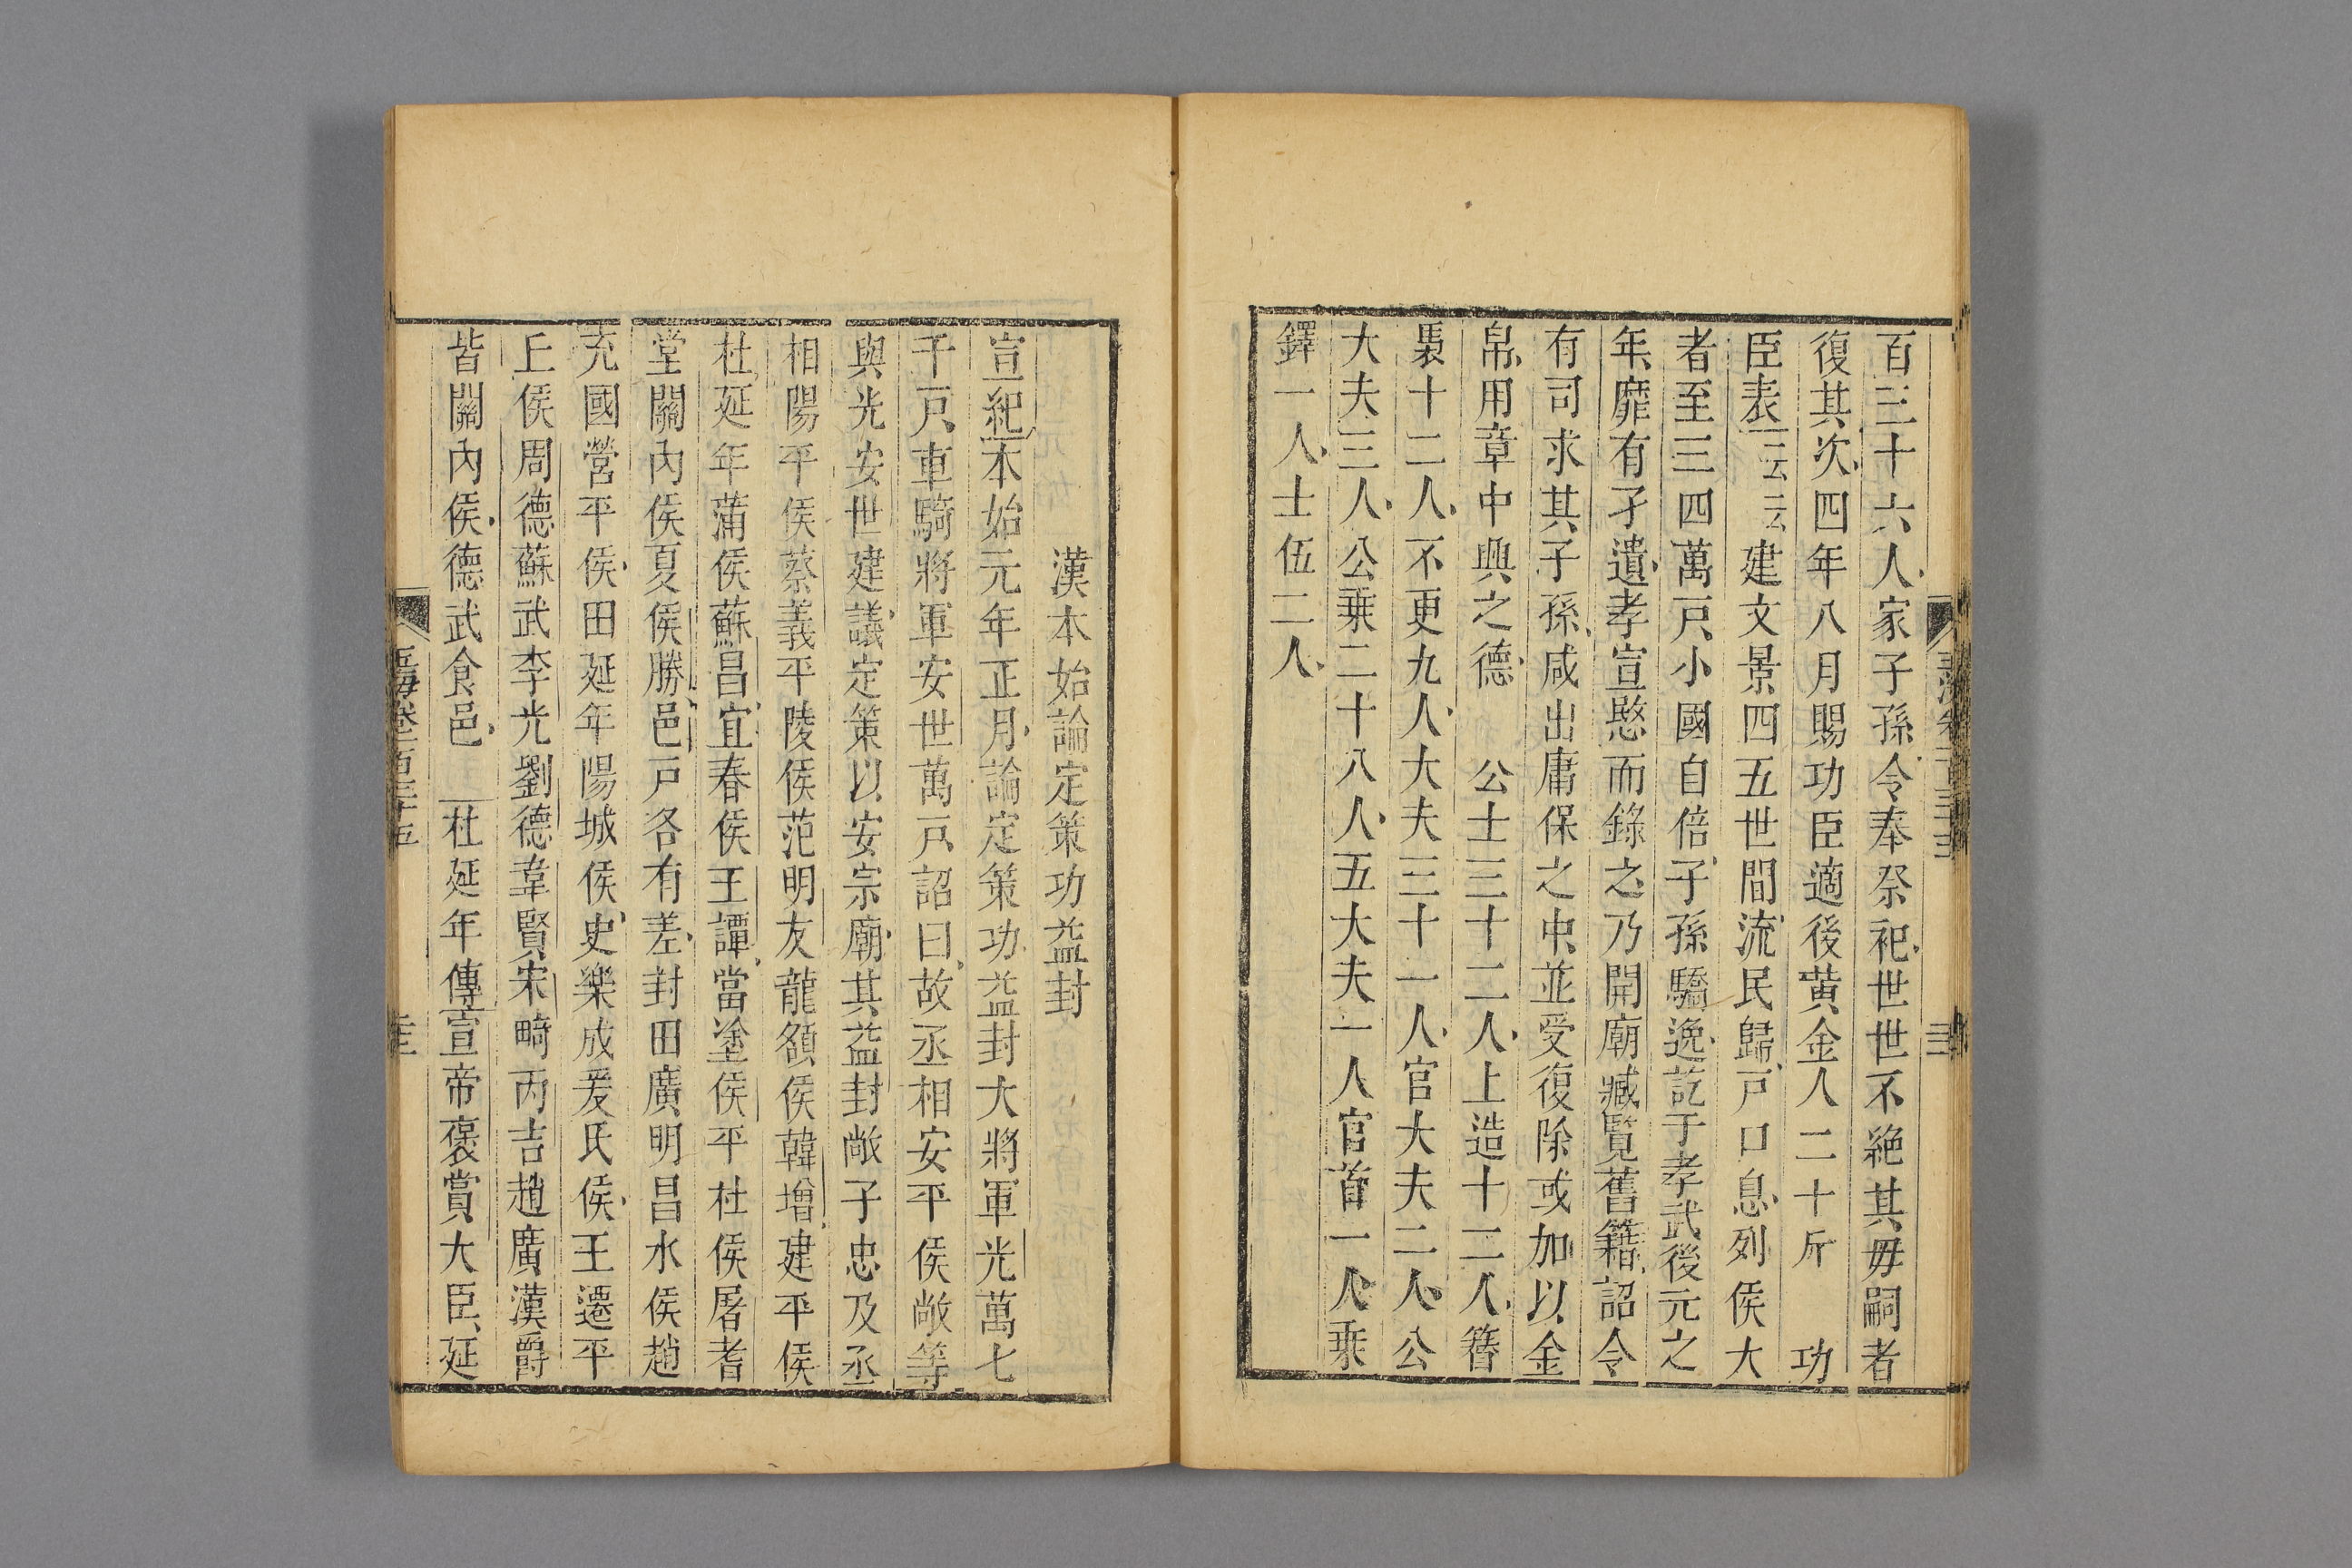 百三十六人家子孫令奉祭祀世世不絶其毋嗣者
復其次四年八月賜功臣適後黄金人二十斤　功
臣表云云建文景四五世間流民歸戸口息列侯大
者至三四萬戸小國自倍子孫驕逸訖于孝武後元之
年靡有孑遺孝宣愍而錄之乃開廟臧覽舊籍詔令
有司求其子孫咸出庸保之中並受復除或加以金
帛用章中興之德　公士三十二人上造十二人簪
褭十二人不更九人大夫三十一人官大夫二人公
大夫三人公乗二十八人五大夫一人官首一人乗
鐸一人士伍二人
漢本始論定策功益封
宣紀本始元年正月論定策功益封大將軍光萬七
千戸車騎將軍安世萬戸詔曰故丞相安平侯敞等
與光安世建議定策以安宗廟其益封敞子忠及丞
相陽平侯蔡義平陵侯范明友龍頟侯韓增建平侯
杜延年蒲侯蘇昌宜春侯王譚當塗侯平杜侯屠耆
堂關内侯夏侯勝邑戸各有差封田廣明昌水侯趙
充國營平侯田延年陽城侯史樂成爰氏侯王遷平
丘侯周德蘇武李光劉德韋賢宋畸丙吉趙廣漢爵
皆關内侯德武食邑　杜延年傳宣帝褒賞大臣延
玉海卷一百三十五